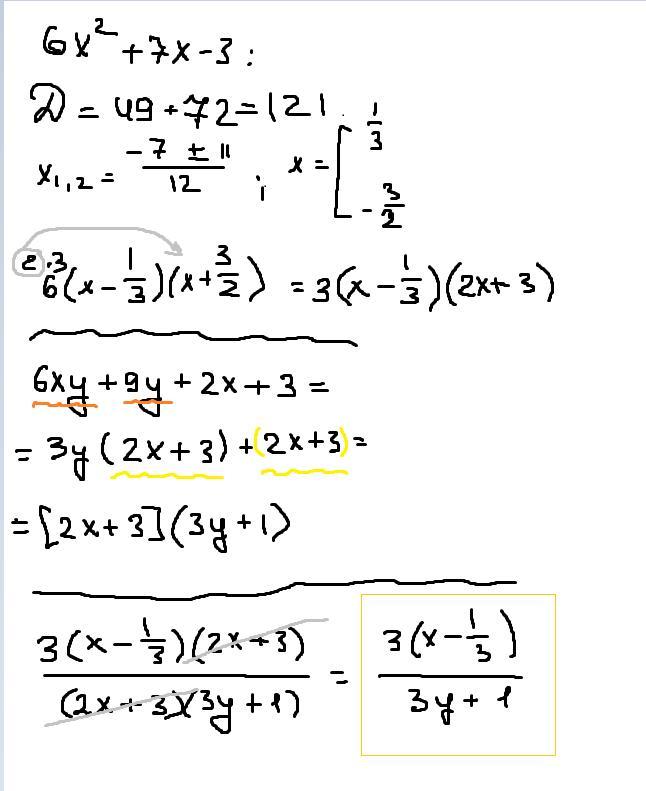 6x² + 7x - 3 :
D = 49 + 72 = 121.
x₁,₂ = (-7 ± 11)/12 ; x = [ 1/3
-3/2
2·3
6(x - 1/3)(x + 3/2) = 3(x - 1/3)(2x + 3)
6xy + 9y + 2x + 3 =
= 3y(2x + 3) + (2x + 3) =
= [2x + 3](3y + 1)
3(x - 1/3)(2x + 3)/(2x + 3)(3y + 1) = 3(x - 1/3)/3y + 1